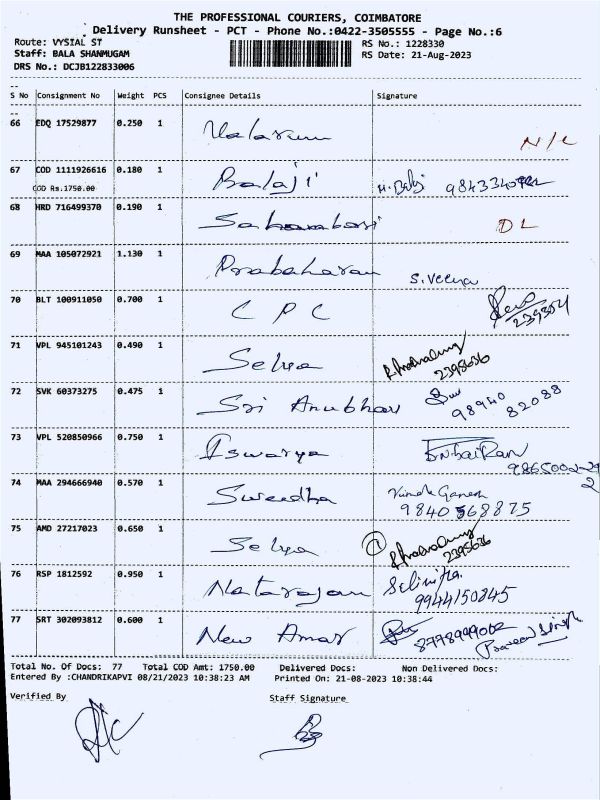 THE PROFESSIONAL COURIERS, COIMBATORE
Delivery Runsheet - PCT - Phone No.:0422-3505555 - Page No.:6
Route: VYSIAL ST
RS No.: 1228330
Staff: BALA SHANMUGAM
RS Date: 21-Aug-2023
DRS No.: DCJB122833006
S No Consignment No Weight PCS Consignee Details Signature
66 EDQ 17529877 0.250 1 N/C
67 COD 1111926616 0.180 1 Balaji
COD Rs.1750.00
68 HRD 716499370 0.190 1 DL
69 MAA 105072921 1.130 1 Prabaharan S. Veena
70 BLT 100911050 0.700 1 CPC 239304
71 VPL 945101243 0.490 1 Selva 2395636
72 SVK 60373275 0.475 1 Sri Anubhav 98940 82088
73 VPL 520850966 0.750 1 Iswarya
74 MAA 294666940 0.570 1 Swedha 9840568875
75 AMD 27217023 0.650 1 Selva 1 2395636
76 RSP 1812592 0.950 1 Natarajan 9944150845
77 SRT 302093812 0.600 1 New Amar 8778999002 Praveen Singh
Total No. Of Docs: 77 Total COD Amt: 1750.00 Delivered Docs: Non Delivered Docs:
Entered By :CHANDRIKAPVI 08/21/2023 10:38:23 AM Printed On: 21-08-2023 10:38:44
Verified By Staff Signature